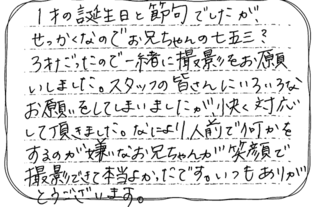 1才の誕生日と節句でしたが、
せっかくなのでお兄ちゃんの七五三?
3才だったので一緒に撮影をお願
いしました。スタッフの皆さんにいろいろな
お願いをしてしまいましたが快く対応
して頂きました。なにより人前で何かを
するのが嫌いなお兄ちゃんが笑顔で
撮影できて本当よかったです。いつもありが
とうございます。